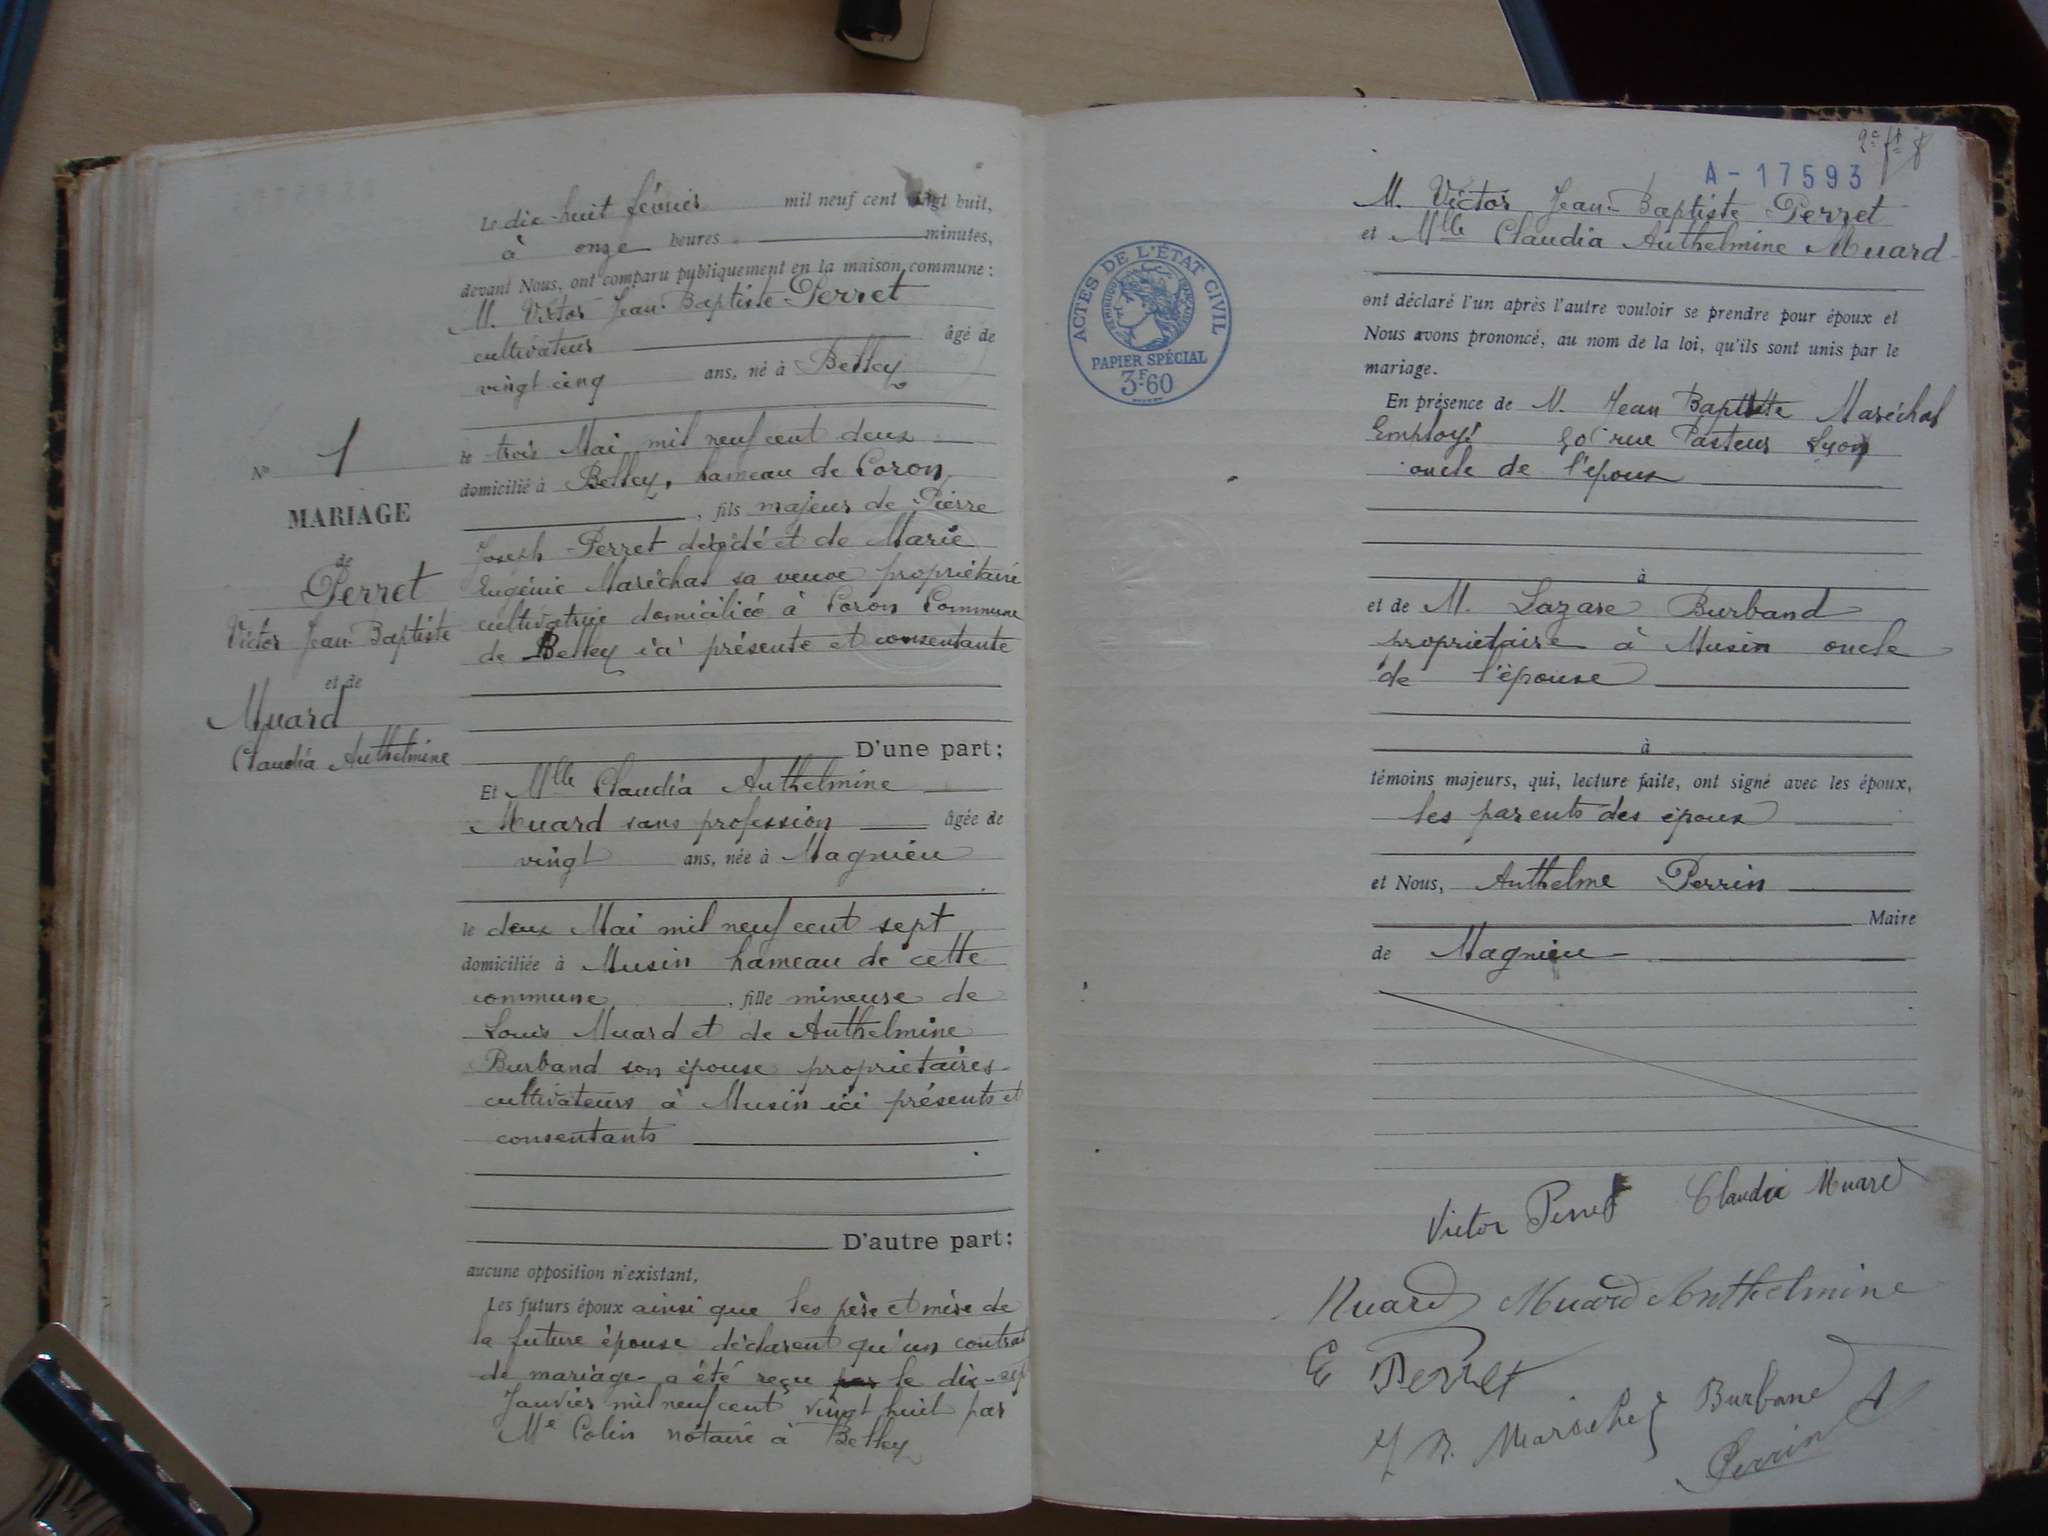 Le dix-huit février mil neuf cent vingt huit,
à onze heures minutes,
devant Nous, ont comparu publiquement en la maison commune :
M. Victor Jean-Baptiste Perret
cultivateur âgé de
vingt cinq ans, né à Belley
le trois Mai mil neuf cent deux
domicilié à Belley, hameau de Coron
, fils majeur de Pierre
Joseph Perret décédé et de Marie
Eugénie Maréchal sa veuve propriétaire
cultivatrice domiciliée à Coron Commune
de Belley ici présente et consentante
D'une part ;
Et Mlle Claudia Anthelmine
Muard sans profession âgée de
vingt ans, née à Magnieu
le deux Mai mil neuf cent sept
domiciliée à Musin hameau de cette
commune , fille mineure de
Louis Muard et de Anthelmine
Burband son épouse propriétaires-
cultivateurs à Musin ici présents et
consentants
D'autre part ;
aucune opposition n'existant,
Les futurs époux ainsi que les père et mère de
la future épouse déclarent qu'un contrat
de mariage a été reçu par le dix-sept
Janvier mil neuf cent vingt huit par
Me Colin notaire à Belley
No 1
MARIAGE
de
Perret
Victor Jean-Baptiste
et de
Muard
Claudia Anthelmine
A-17593
M. Victor Jean-Baptiste Perret
et Mlle Claudia Anthelmine Muard
ont déclaré l'un après l'autre vouloir se prendre pour époux et
Nous avons prononcé, au nom de la loi, qu'ils sont unis par le
mariage.
En présence de M. Jean Baptiste Maréchal
Employé rue Pasteur Lyon
oncle de l'époux
à
et de M. Lazare Burband
propriétaire à Musin oncle
de l'épouse
à
témoins majeurs, qui, lecture faite, ont signé avec les époux,
les parents des époux
et Nous, Anthelme Perrin
Maire
de Magnieu
ACTES DE L'ÉTAT CIVIL
RÉPUBLIQUE FRANÇAISE
PAPIER SPÉCIAL
3F60
Victor Perret Claudia Muard
Muard Muard Anthelmine
E Perret
J B. Maréchal Burband
Perrin A